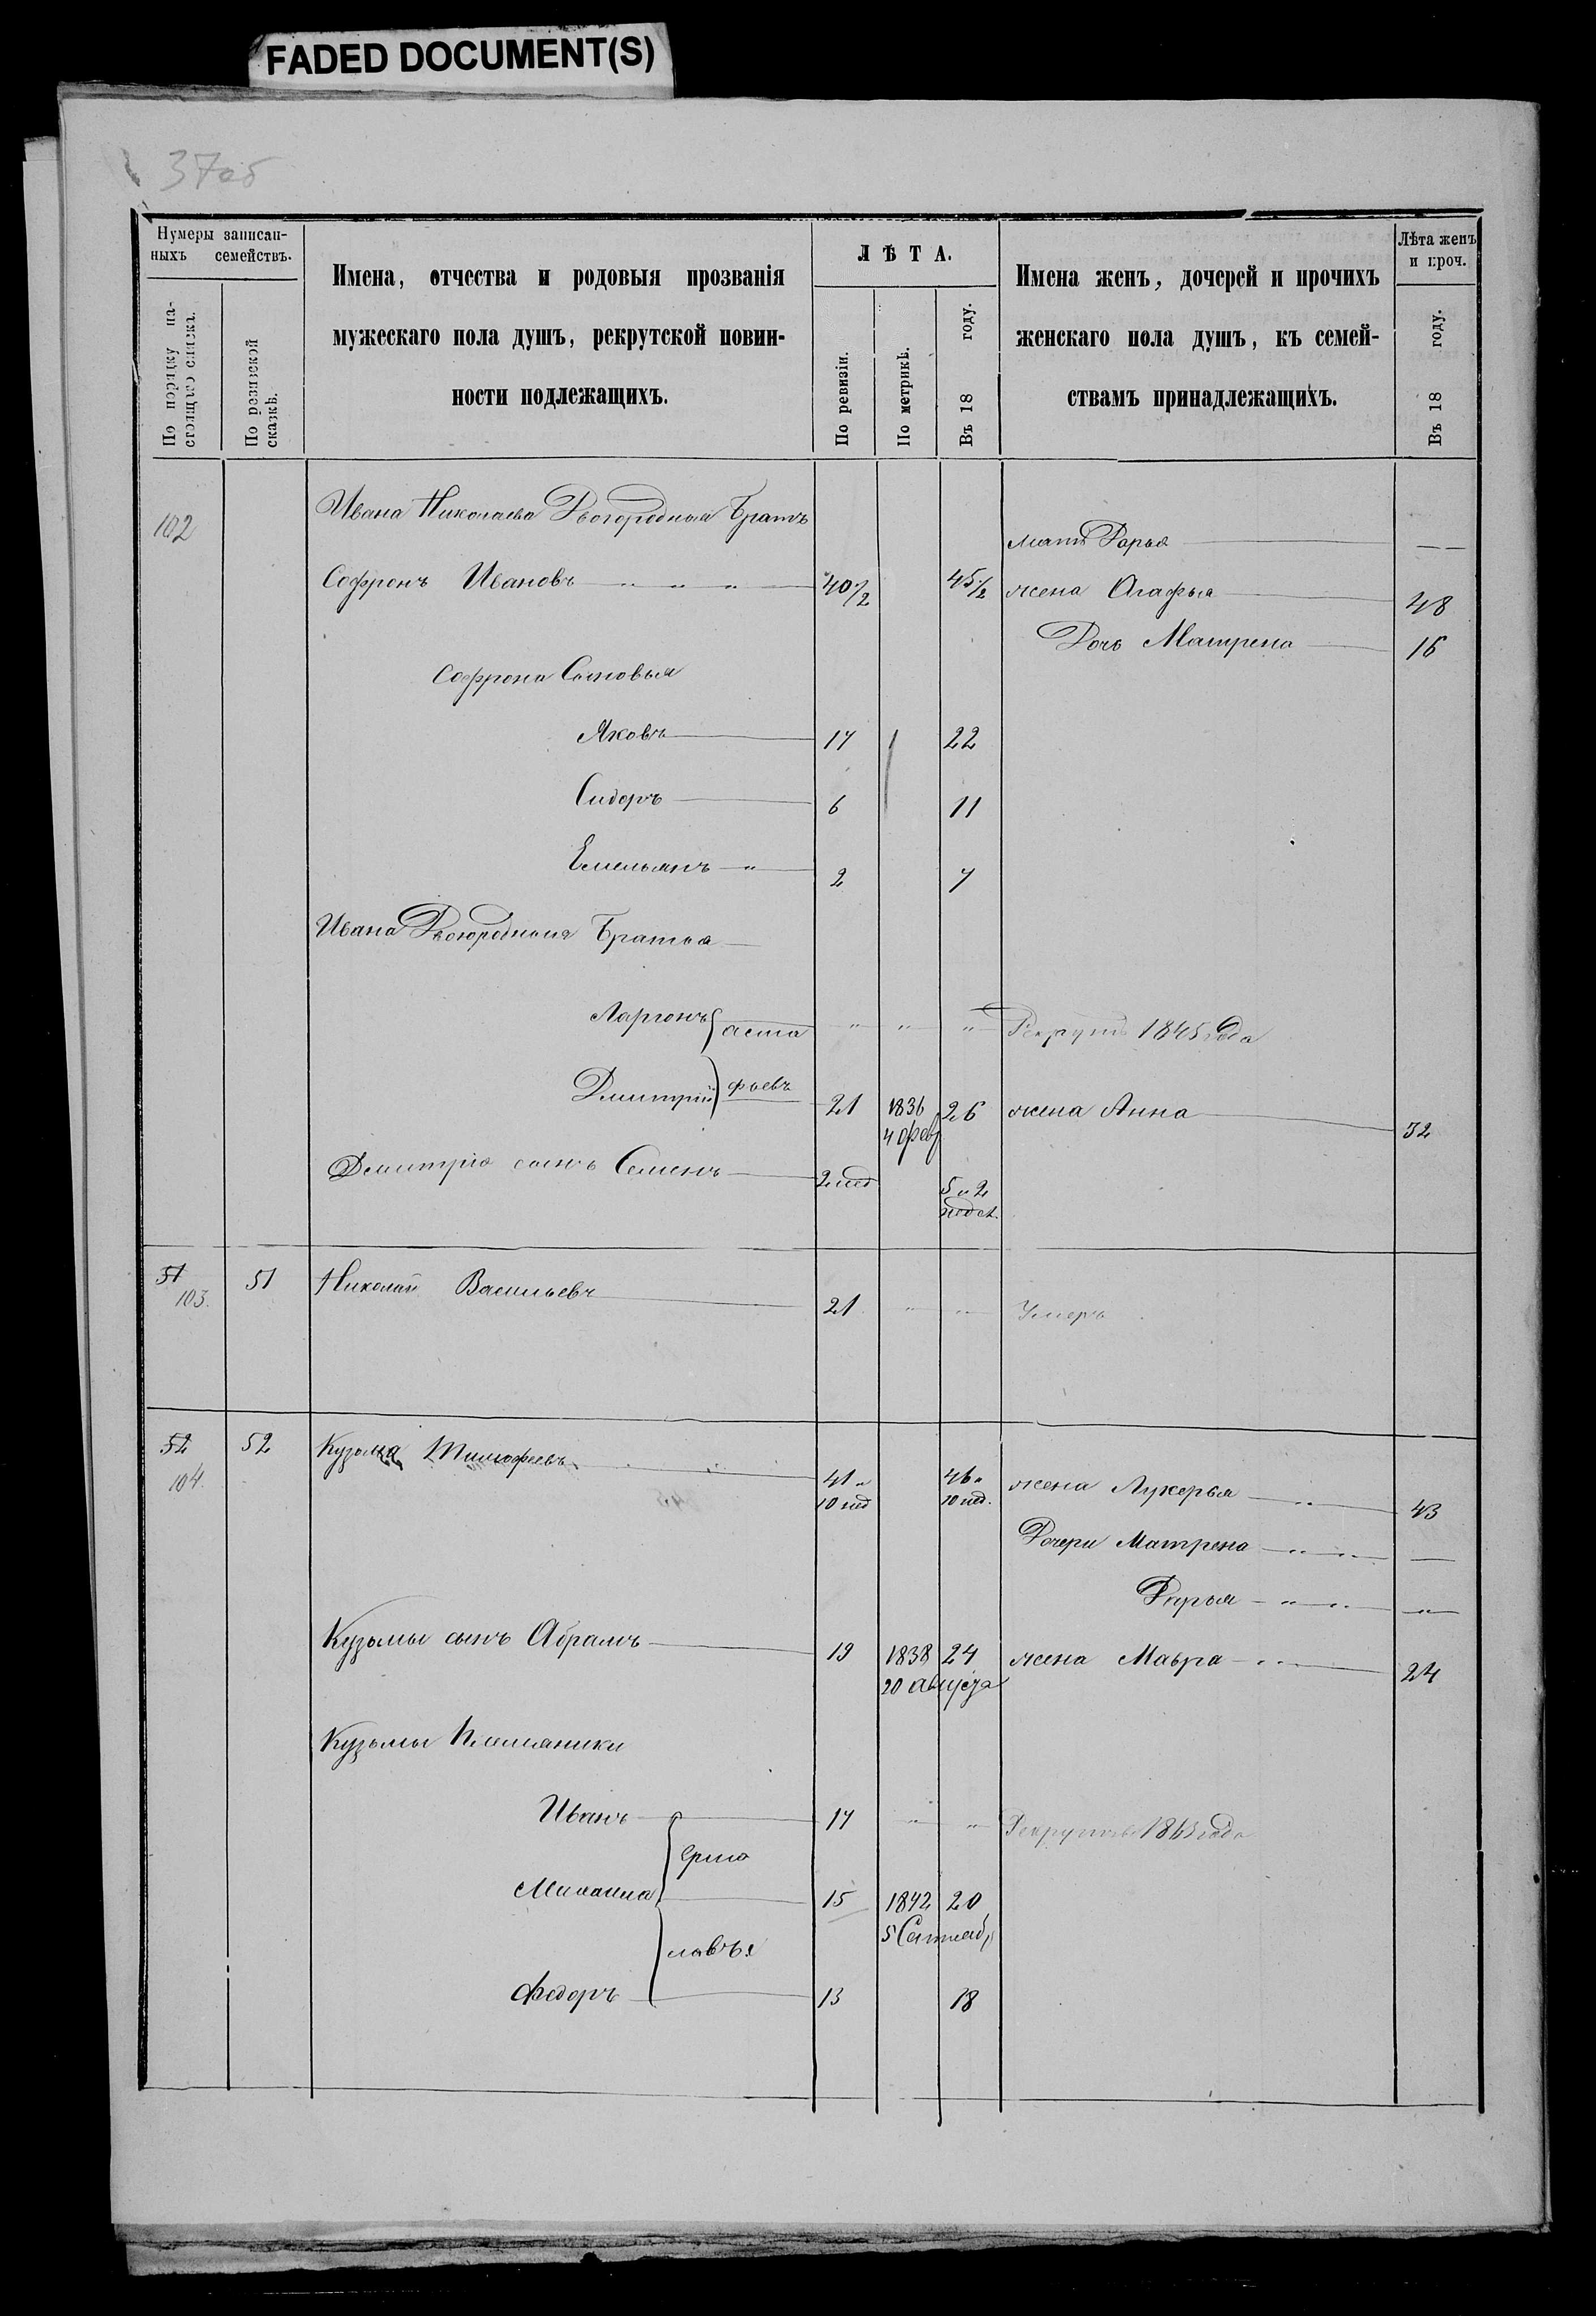 FADED DOCUMENT(S)
37об
Нумеры записан-
ныхъ семействъ.
По порядку на-
стоящаго списка.
По ревизской
сказкѣ.
Имена, отчества и родовыя прозванія
мужескаго пола душъ, рекрутской повин-
ности подлежащихъ.
ЛѢТА.
По ревизіи.
По метрикѣ.
Въ 18 году.
Имена женъ, дочерей и прочихъ
женскаго пола душъ, къ семей-
ствамъ принадлежащихъ.
Лѣта женъ
и проч.
Въ 18 году.
102 Ивана Николаева Двоюродный Братъ
мать Дарья —
Софронъ Ивановъ 40½ 45½ жена Агафья 48
Дочь Матрена 16
Софрона Сыновья
Яковъ 17 22
Сидоръ 6 11
Емельянъ 2 7
Ивана Двоюродныя Братья
Ларіонъ аста " " " Рекрутъ 1845 года
Дмитрій фьевъ 21 1836 26 жена Анна 32
4 фев
Дмитрія сынъ Семенъ 2 нед 5 и 2
недел.
51 51 Николай Васильевъ 21 " " Умеръ
103.
52 52 Кузьма Тимофеевъ 41 и 46 и жена Лукерья 43
104. 10 нед 10 нед.
Дочери Матрена —
Дарья —
Кузьмы сынъ Абрамъ 19 1838 24 жена Мавра 24
20 августа
Кузьмы Племяники
Иванъ 17 " " Рекрутъ 1863 года
Ермо
15 1842 20
5 Сентяб
лаевы
Федоръ 13 18